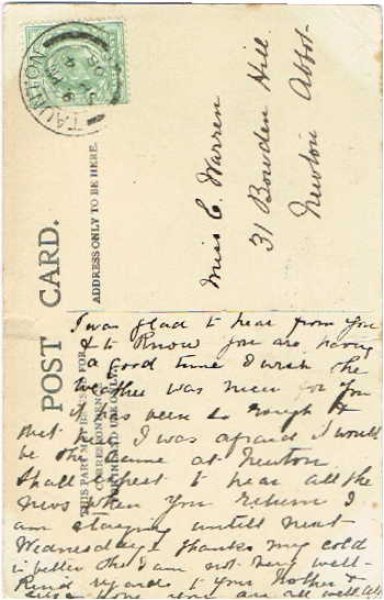 TAUNTON
POST CARD.
ADDRESS ONLY TO BE HERE.
Miss C. Warren
31 Bowden Hill
Newton Abbot
I was glad to hear from you
& to know you are having
a good time I wish the
weather was nicer for you
it has been so rough &
wet here I was afraid it would
be the same at Newton
Shall expect to hear all the
news when you return I
am staying untill next
Wednesday thanks my cold
is better tho I am not very well
Kind regards to your Mother &
hope you are all well